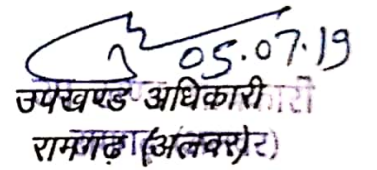 05.07.19
उपखण्ड अधिकारी
रामगढ़ (अलवर)